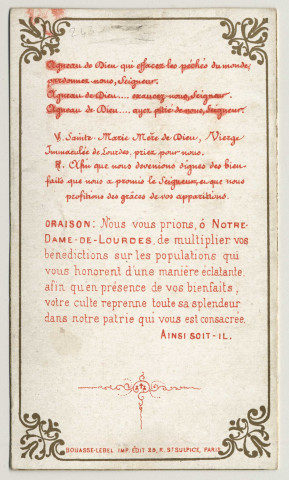 246
Agneau de Dieu qui effacez les péchés du monde,
pardonnez-nous, Seigneur.
Agneau de Dieu.... exaucez-nous, Seigneur.
Agneau de Dieu.... ayez pitié de nous, Seigneur.
℣. Sainte-Marie Mère de Dieu, Vierge
Immaculée de Lourdes, priez pour nous.
℟. Afin que nous devenions dignes des bien-
faits que nous a promis le Seigneur, et que nous
profitions des grâces de vos apparitions.
ORAISON: Nous vous prions, ô NOTRE-
DAME-DE-LOURDES, de multiplier vos
bénédictions sur les populations qui
vous honorent d'une manière éclatante.
afin qu'en présence de vos bienfaits,
votre culte reprenne toute sa splendeur
dans notre patrie qui vous est consacrée.
AINSI SOIT-IL.
BOUASSE-LEBEL IMP. EDIT 29, R. ST SULPICE, PARIS